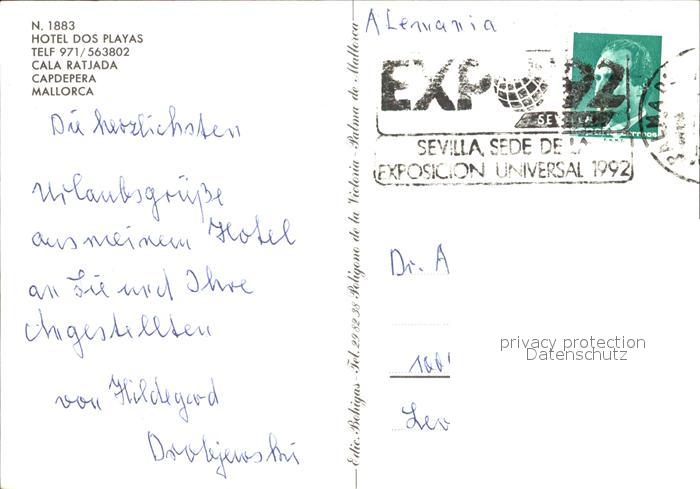 N. 1883
HOTEL DOS PLAYAS
TELF 971/563802
CALA RATJADA
CAPDEPERA
MALLORCA
Die herzlichsten
Urlaubsgrüße
aus meinem Hotel
an Sie und Ihre
Angestellten
von Hildegard
Drobjewski
Edic. Bohigas - Tel. 29 82 38 Polígono de la Victoria - Palma de Mallorca
Alemania
EXPO 92
SEVILLA
SEVILLA, SEDE DE LA
EXPOSICION UNIVERSAL 1992
Dr. A
100
Lev
privacy protection
Datenschutz